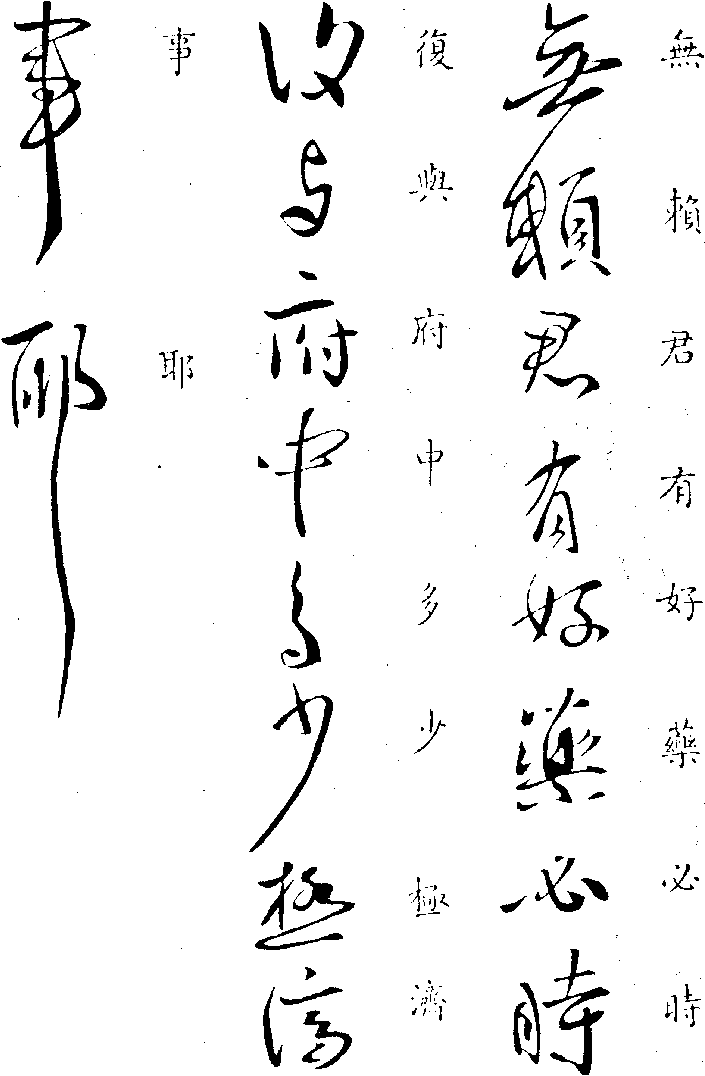 無賴君有好藥必時
無賴君有好藥必時
復與府中多少極濟
復與府中多少極濟
事耶
事耶